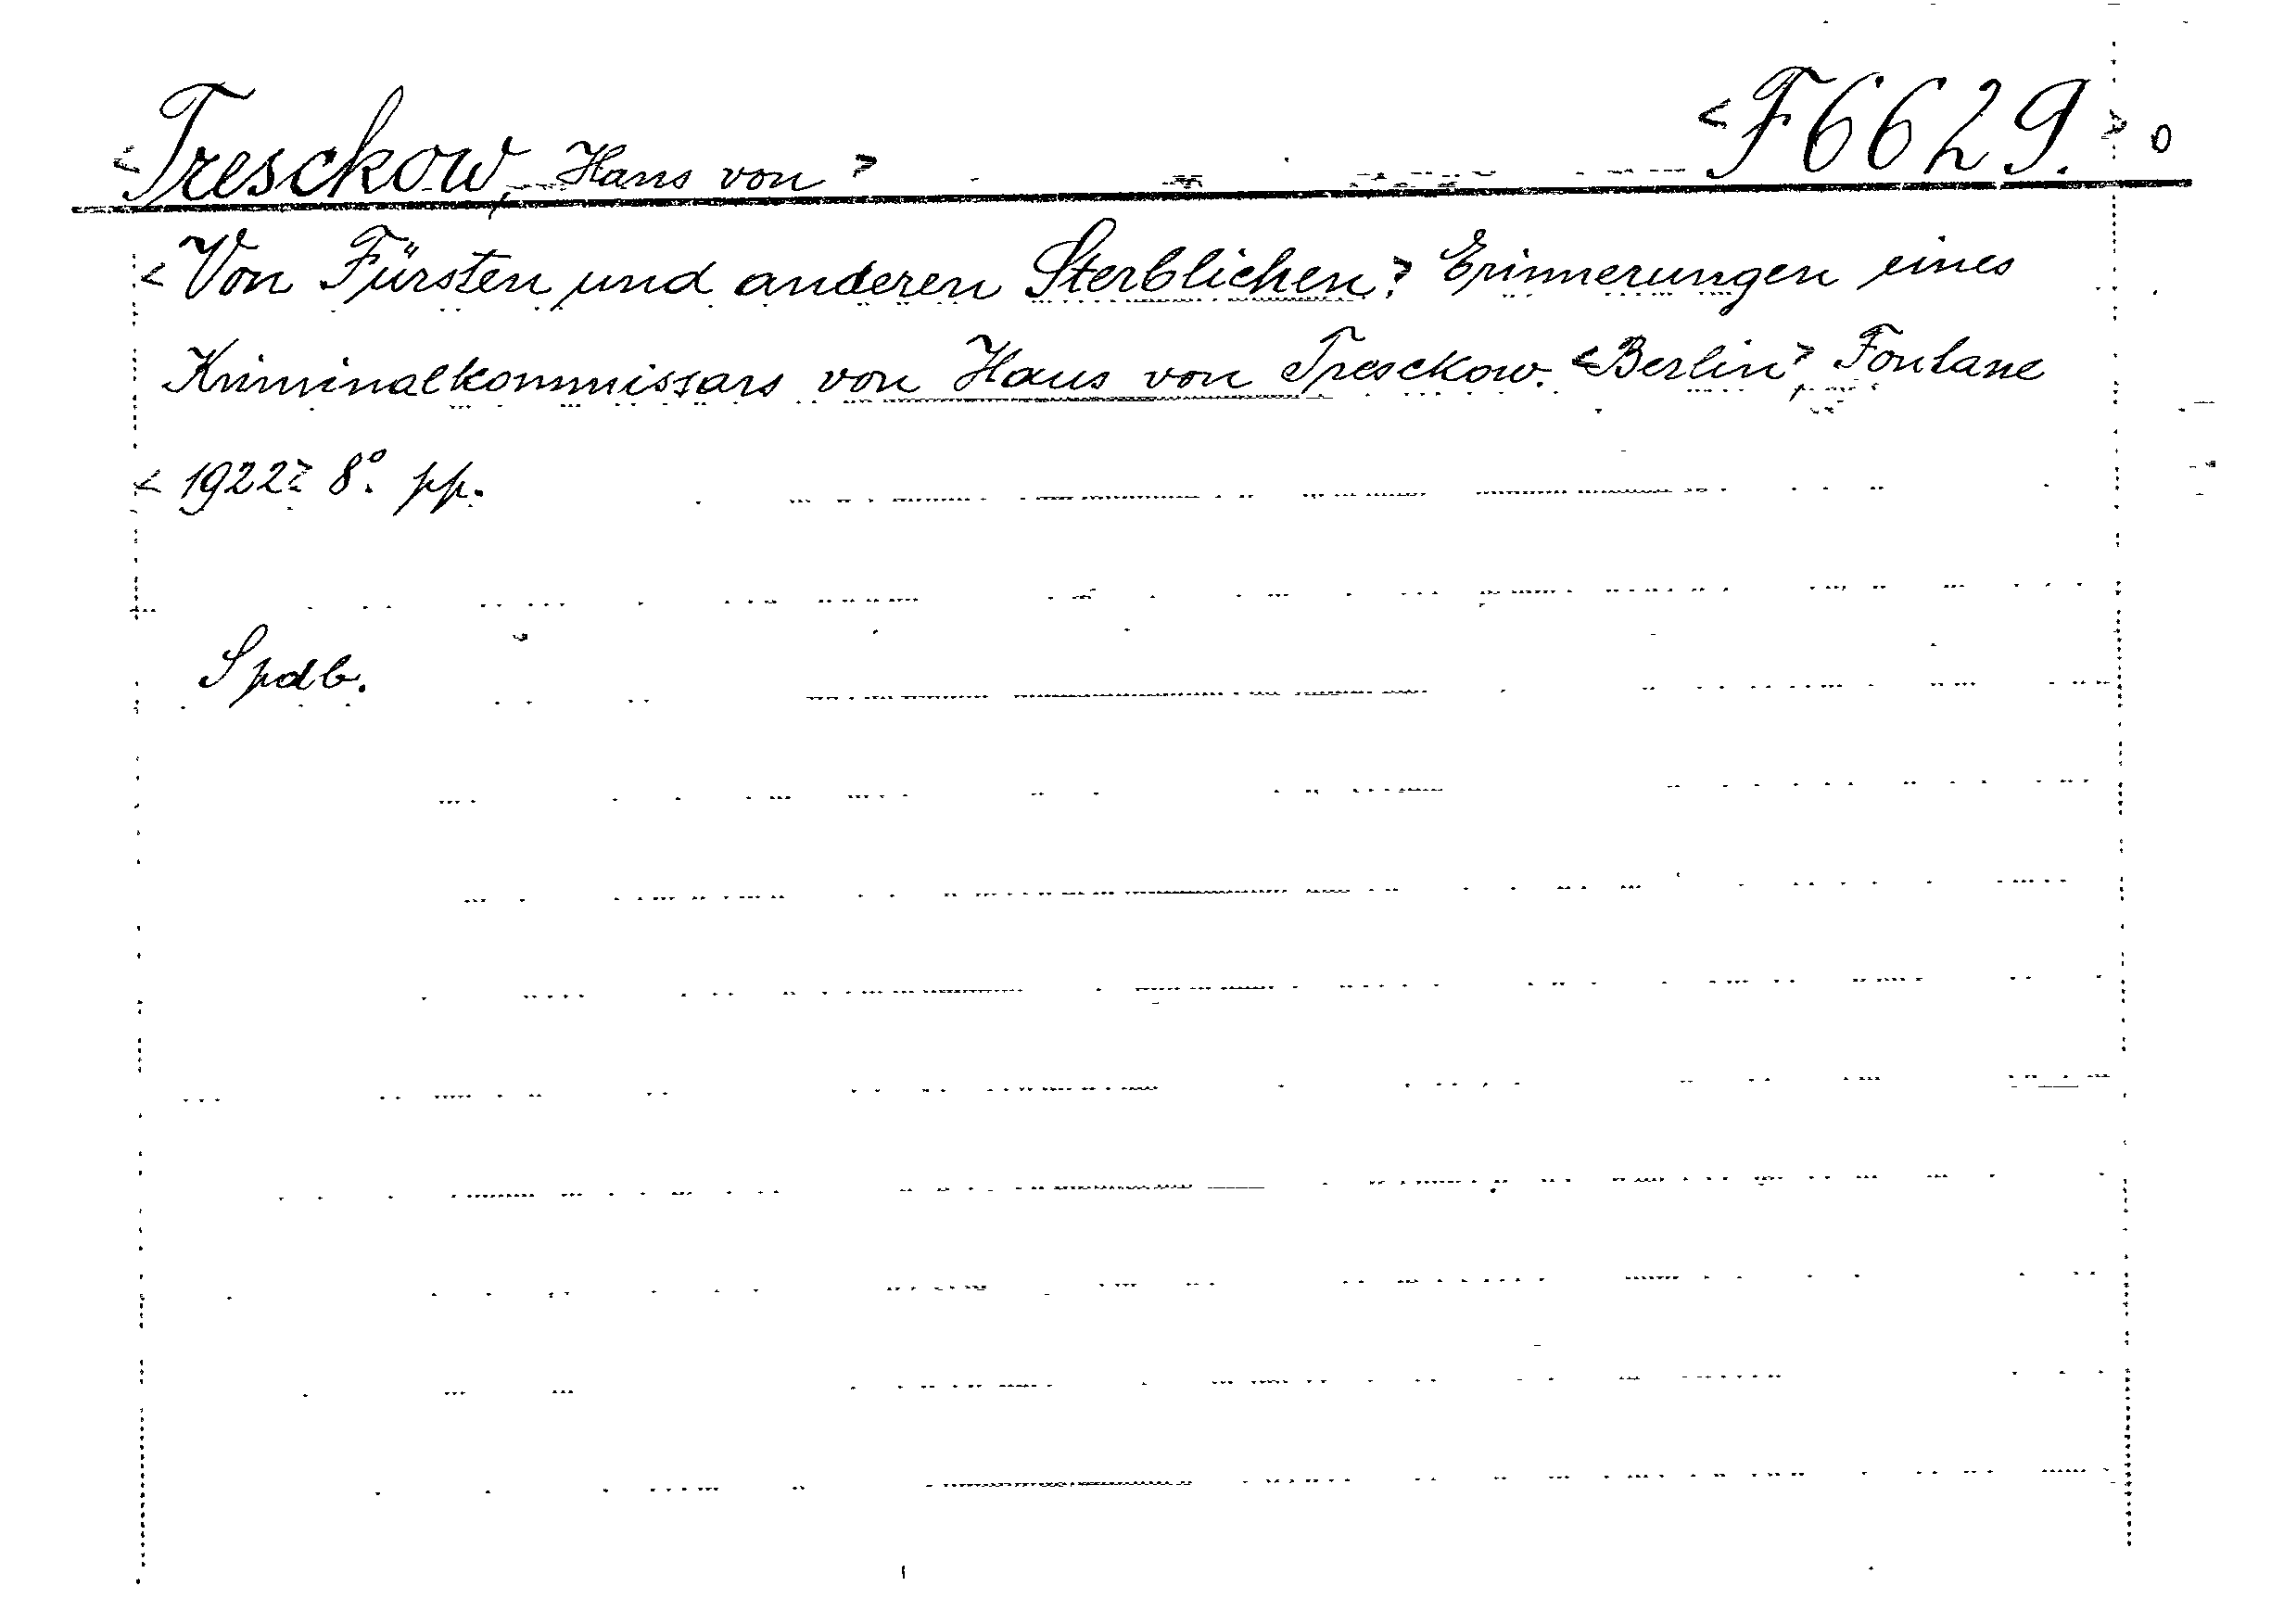 <Tresckow, Hans von> <F6629.> 0
<Von Fürsten und anderen Sterblichen.> Erinnerungen eines
Kriminalkommissars von Hans von Tresckow. <Berlin> Fontane
<1922> 8°. pp.
Spdb.